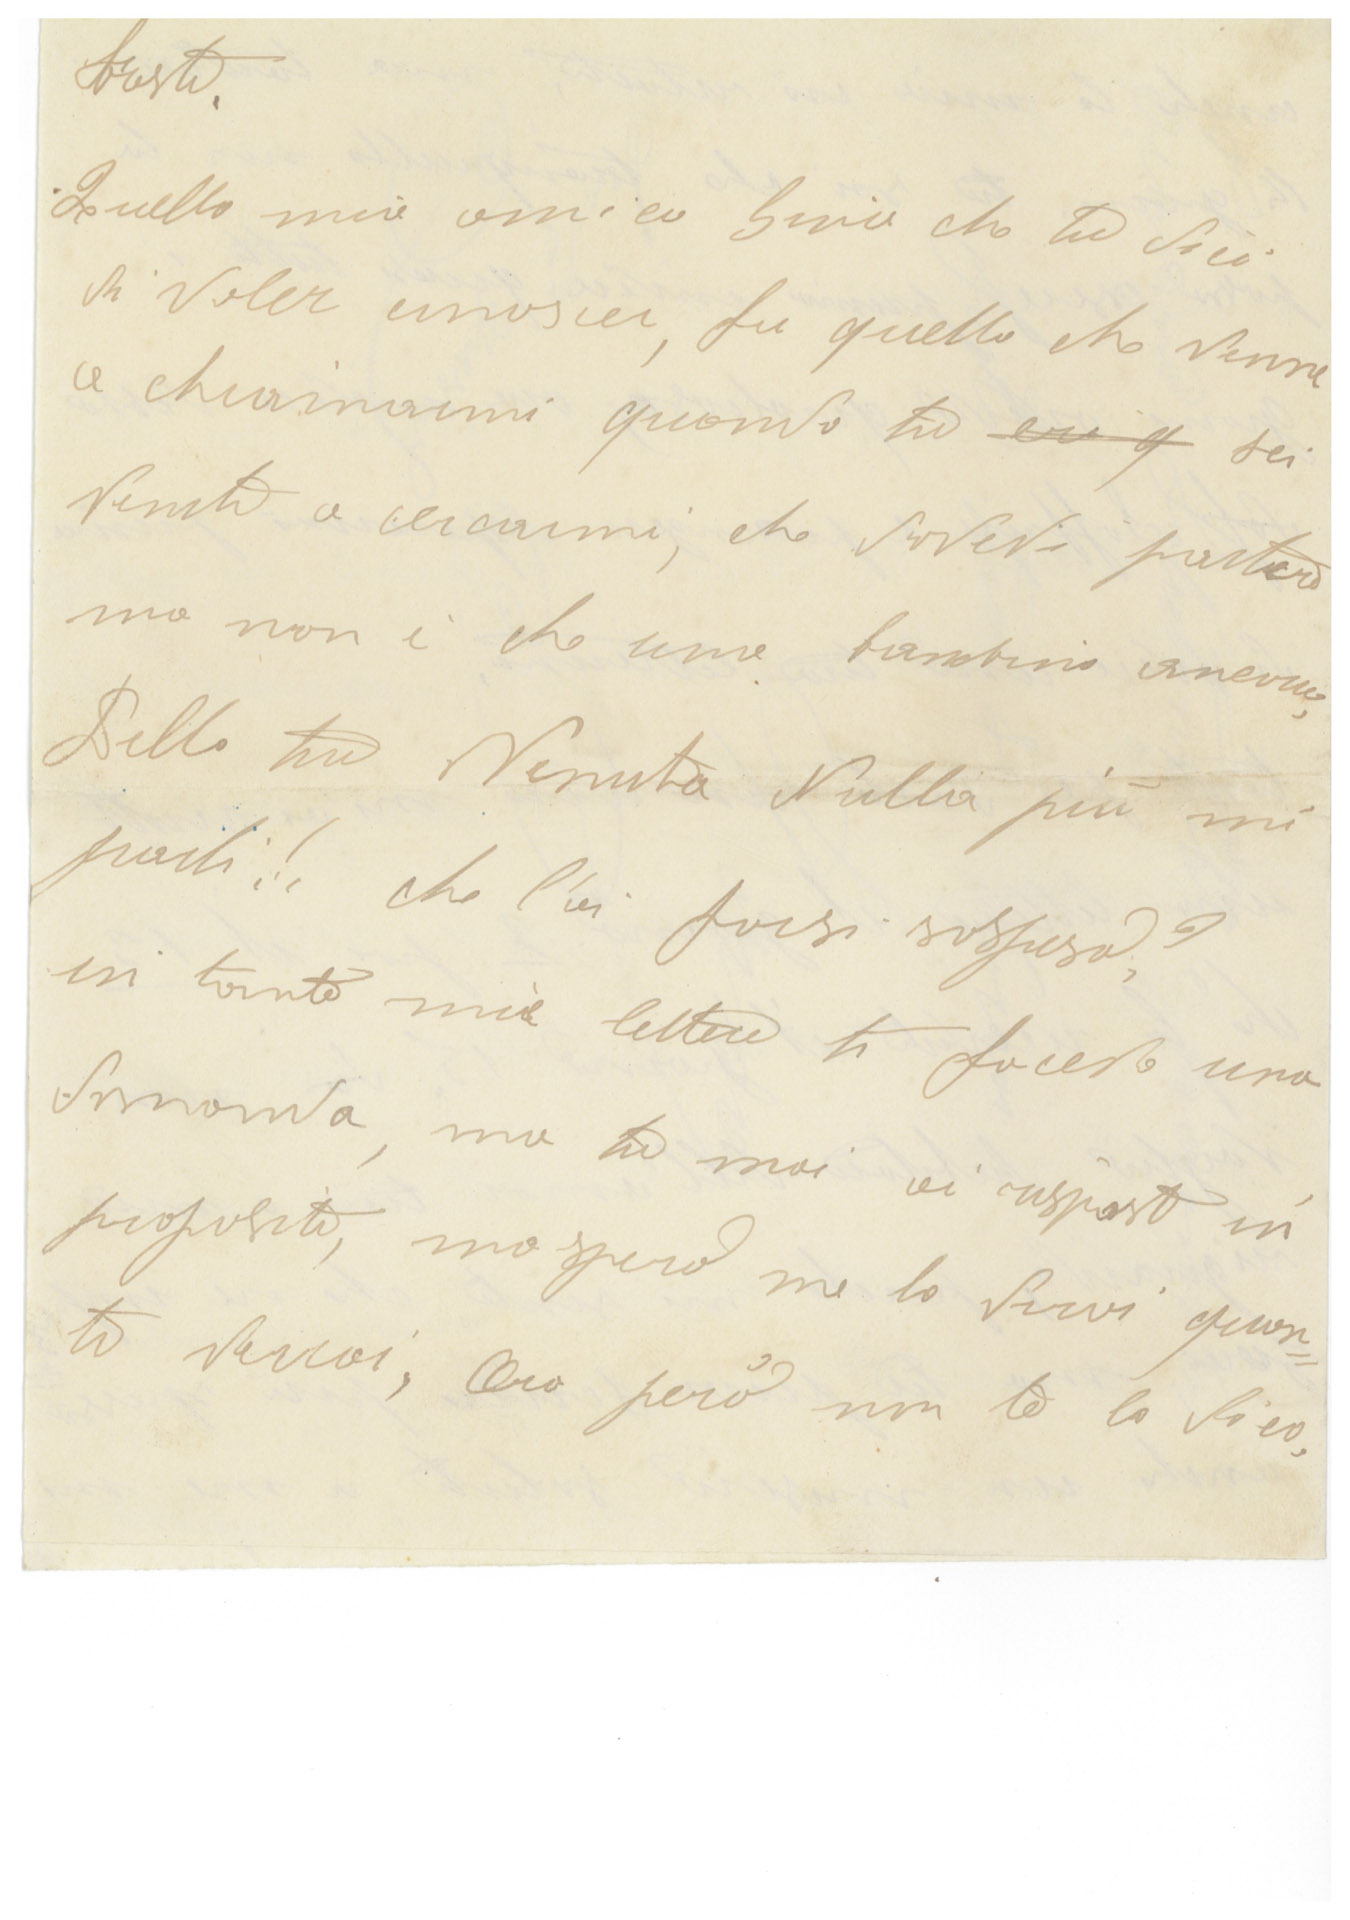 Quello mio amico che tu dici
di voler conoscer, fu quello che venne
a chiamarmi quando tu sei
venuto a cercarmi, che dovevi partire
ma non è che uno bambino ancora,
Della tua Venuta Nulla più mi
parli!! che l'ai forsi sospesa?
in tante mie lettere ti facevo una
domanda, ma tu mai ai risposto in
proposito, ma spero me lo dirai quan=
do verrai, Ora però non te lo dico,